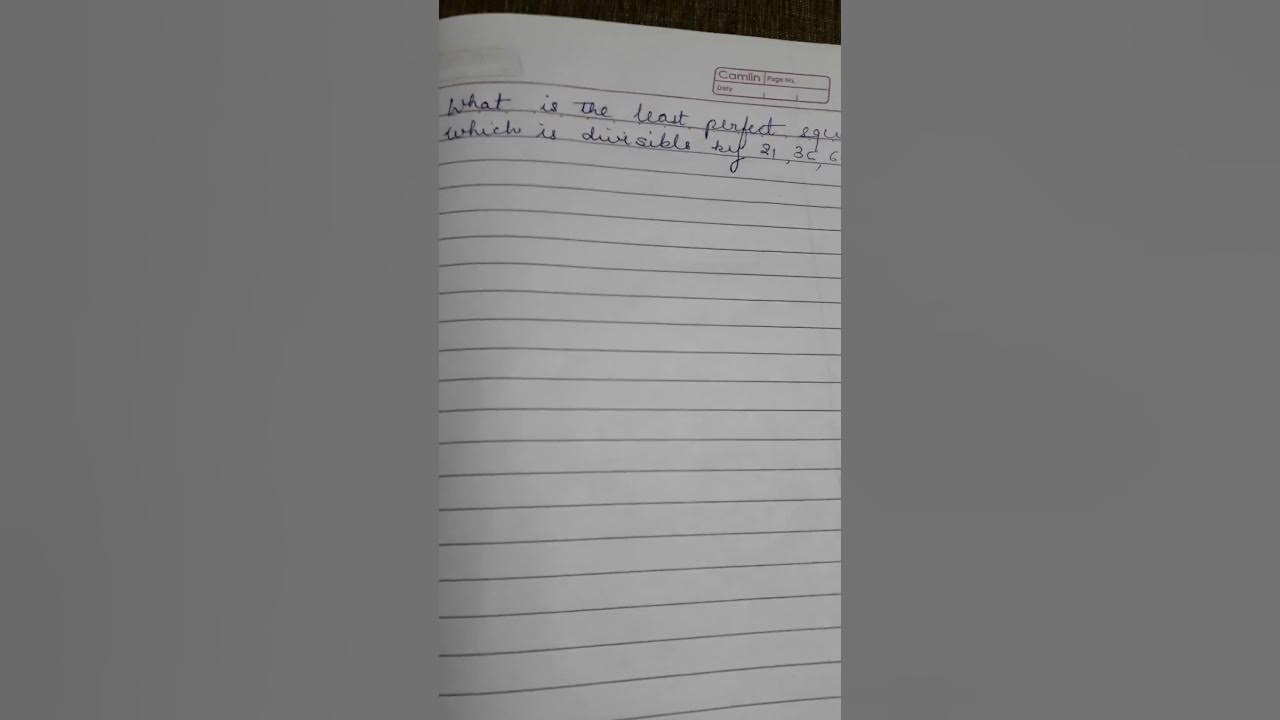 Camlin Page No.
Date
What is the least perfect squ
which is divisible by 21, 36, 6